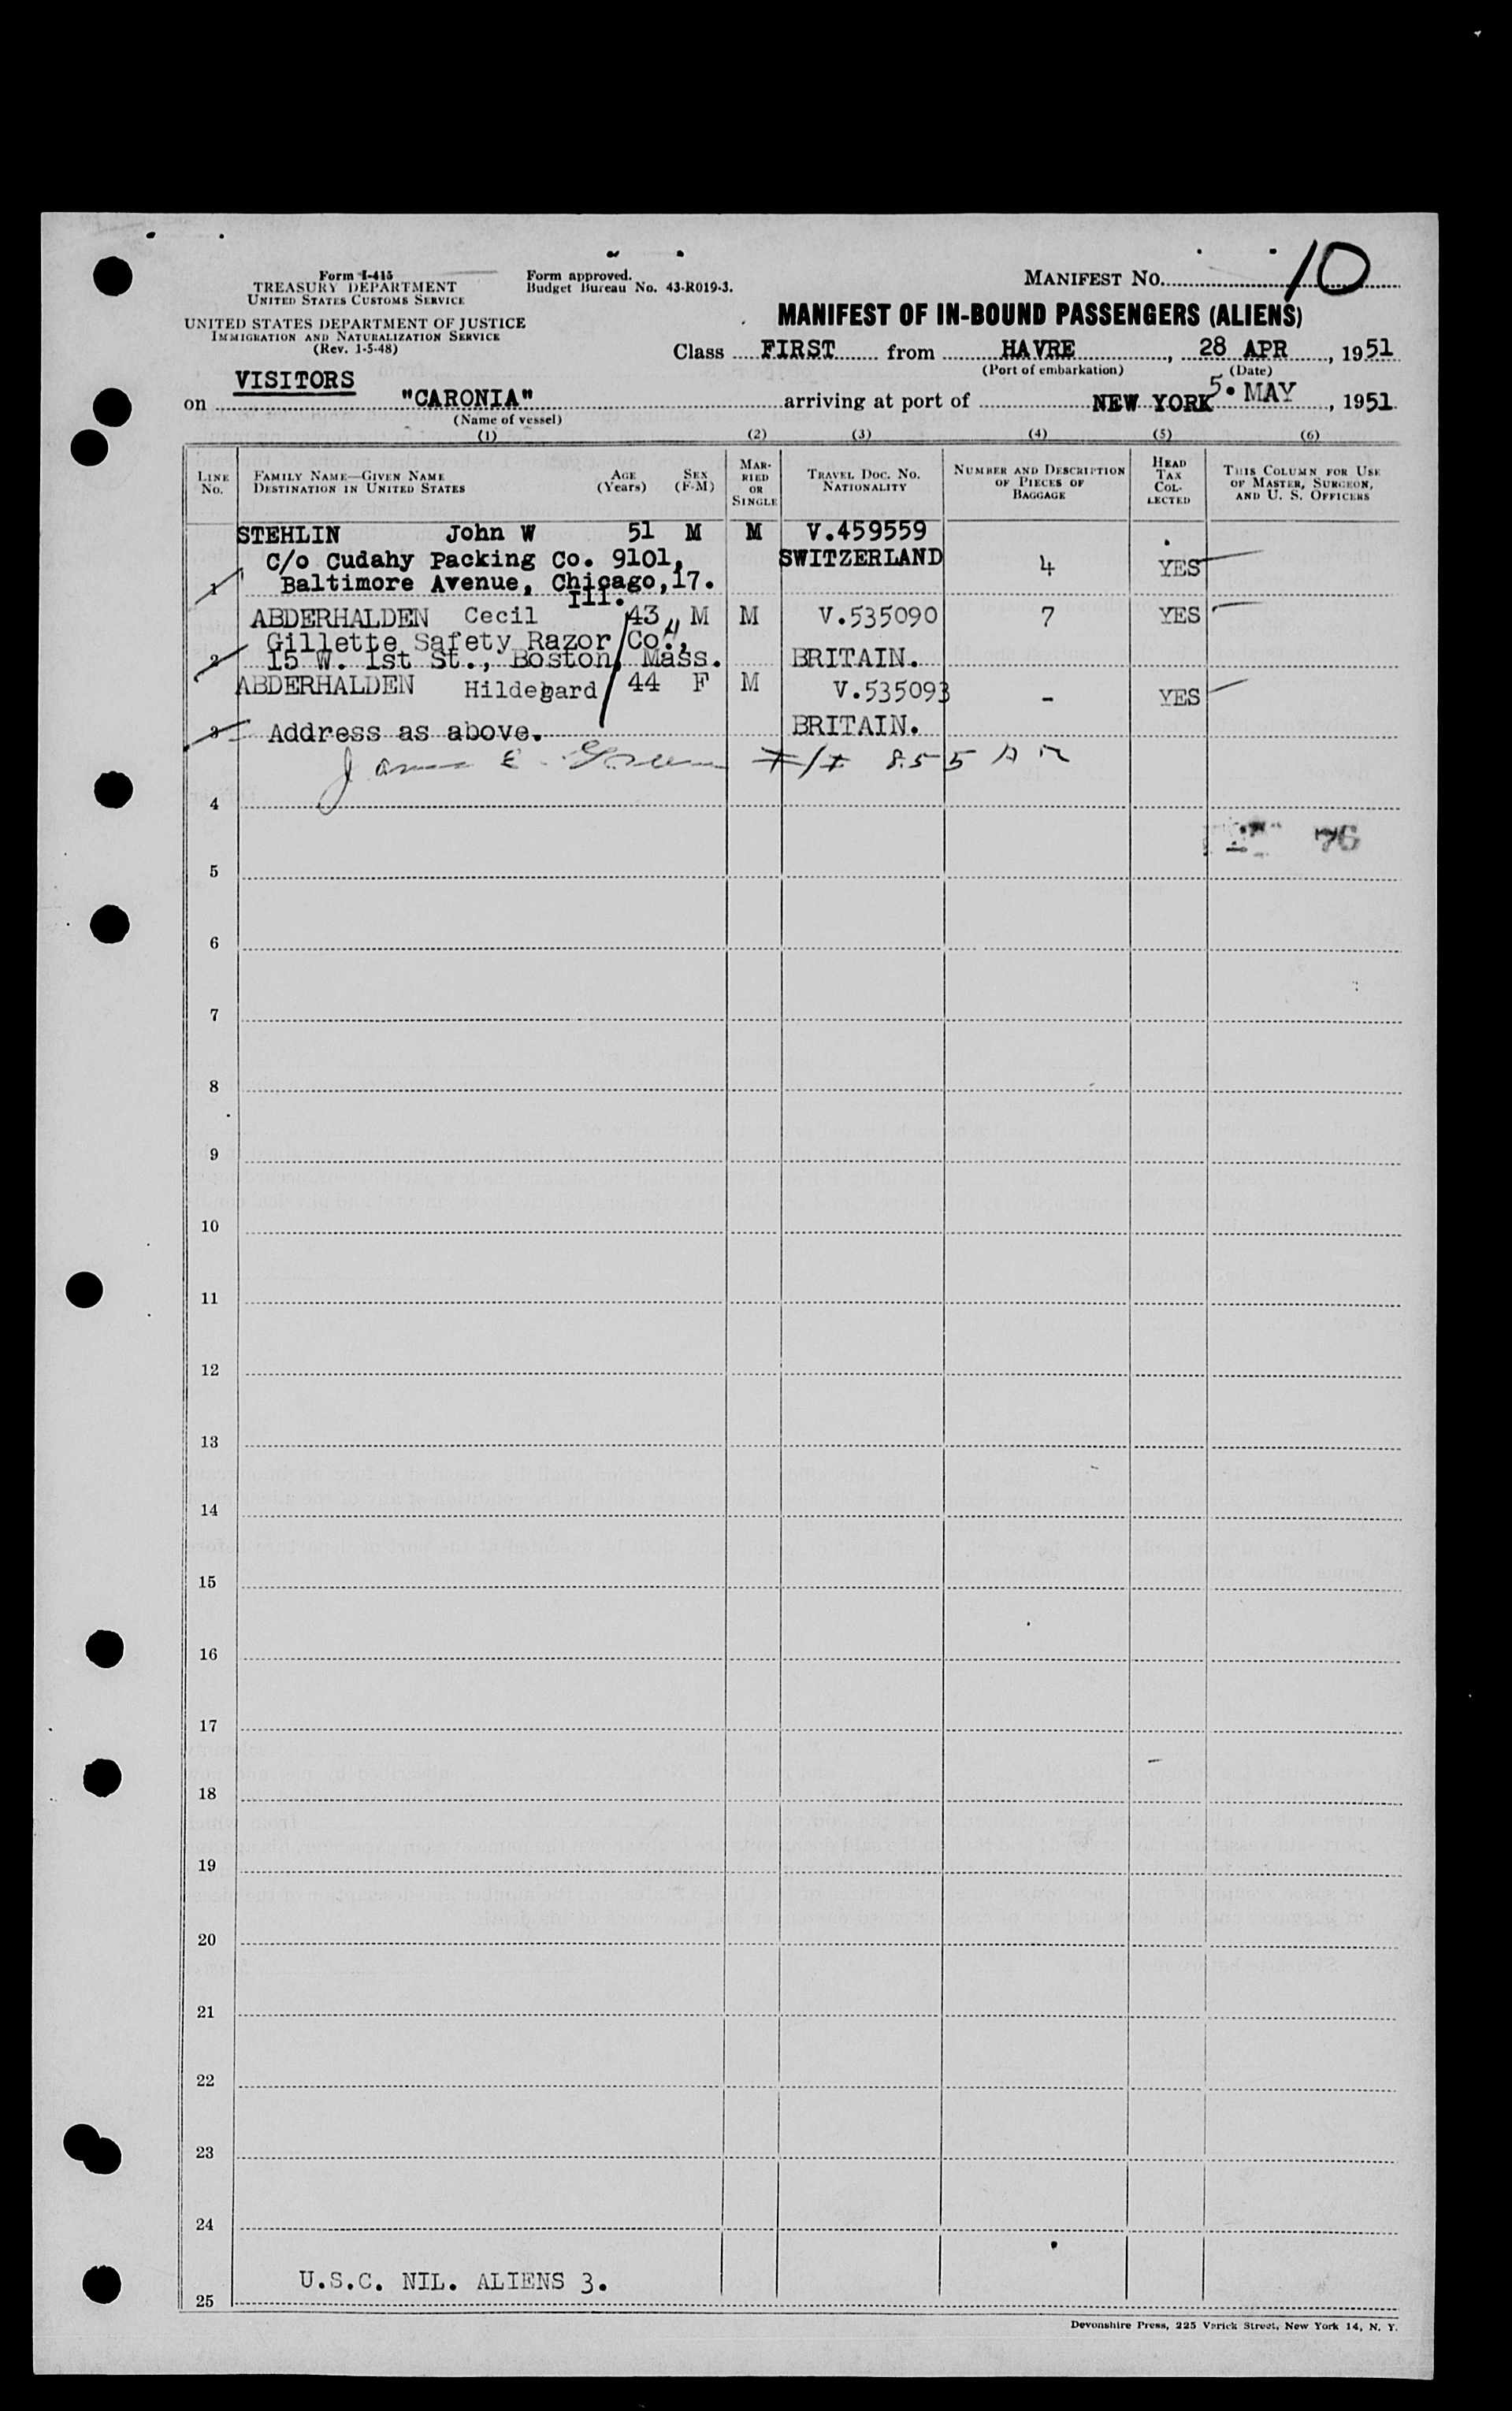 Form I-415
TREASURY DEPARTMENT
UNITED STATES CUSTOMS SERVICE
UNITED STATES DEPARTMENT OF JUSTICE
IMMIGRATION AND NATURALIZATION SERVICE
(Rev. 1-5-48)
Form approved.
Budget Bureau No. 43-R019-3.
MANIFEST No. 10
MANIFEST OF IN-BOUND PASSENGERS (ALIENS)
Class FIRST from HAVRE, 28 APR, 1951
(Port of embarkation) (Date)
VISITORS
on "CARONIA" arriving at port of NEW YORK 5. MAY, 1951
(Name of vessel)
(1) (2) (3) (4) (5) (6)
LINE No. FAMILY NAME—GIVEN NAME DESTINATION IN UNITED STATES AGE (Years) SEX (F-M) MARRIED OR SINGLE TRAVEL DOC. No. NATIONALITY NUMBER AND DESCRIPTION OF PIECES OF BAGGAGE HEAD TAX COLLECTED THIS COLUMN FOR USE OF MASTER, SURGEON, AND U. S. OFFICERS
STEHLIN John W 51 M M V.459559
C/o Cudahy Packing Co. 9101, SWITZERLAND 4 YES
1 Baltimore Avenue, Chicago,17.
Ill.
ABDERHALDEN Cecil 43 M M V.535090 7 YES
Gillette Safety Razor Co.,
2 15 W. 1st St., Boston, Mass. BRITAIN.
ABDERHALDEN Hildegard 44 F M V.535093 - YES
3 Address as above. BRITAIN.
James E. 855
4
76
5
6
7
8
9
10
11
12
13
14
15
16
17
18
19
20
21
22
23
24
U.S.C. NIL. ALIENS 3.
25
Devonshire Press, 225 Varick Street, New York 14, N. Y.